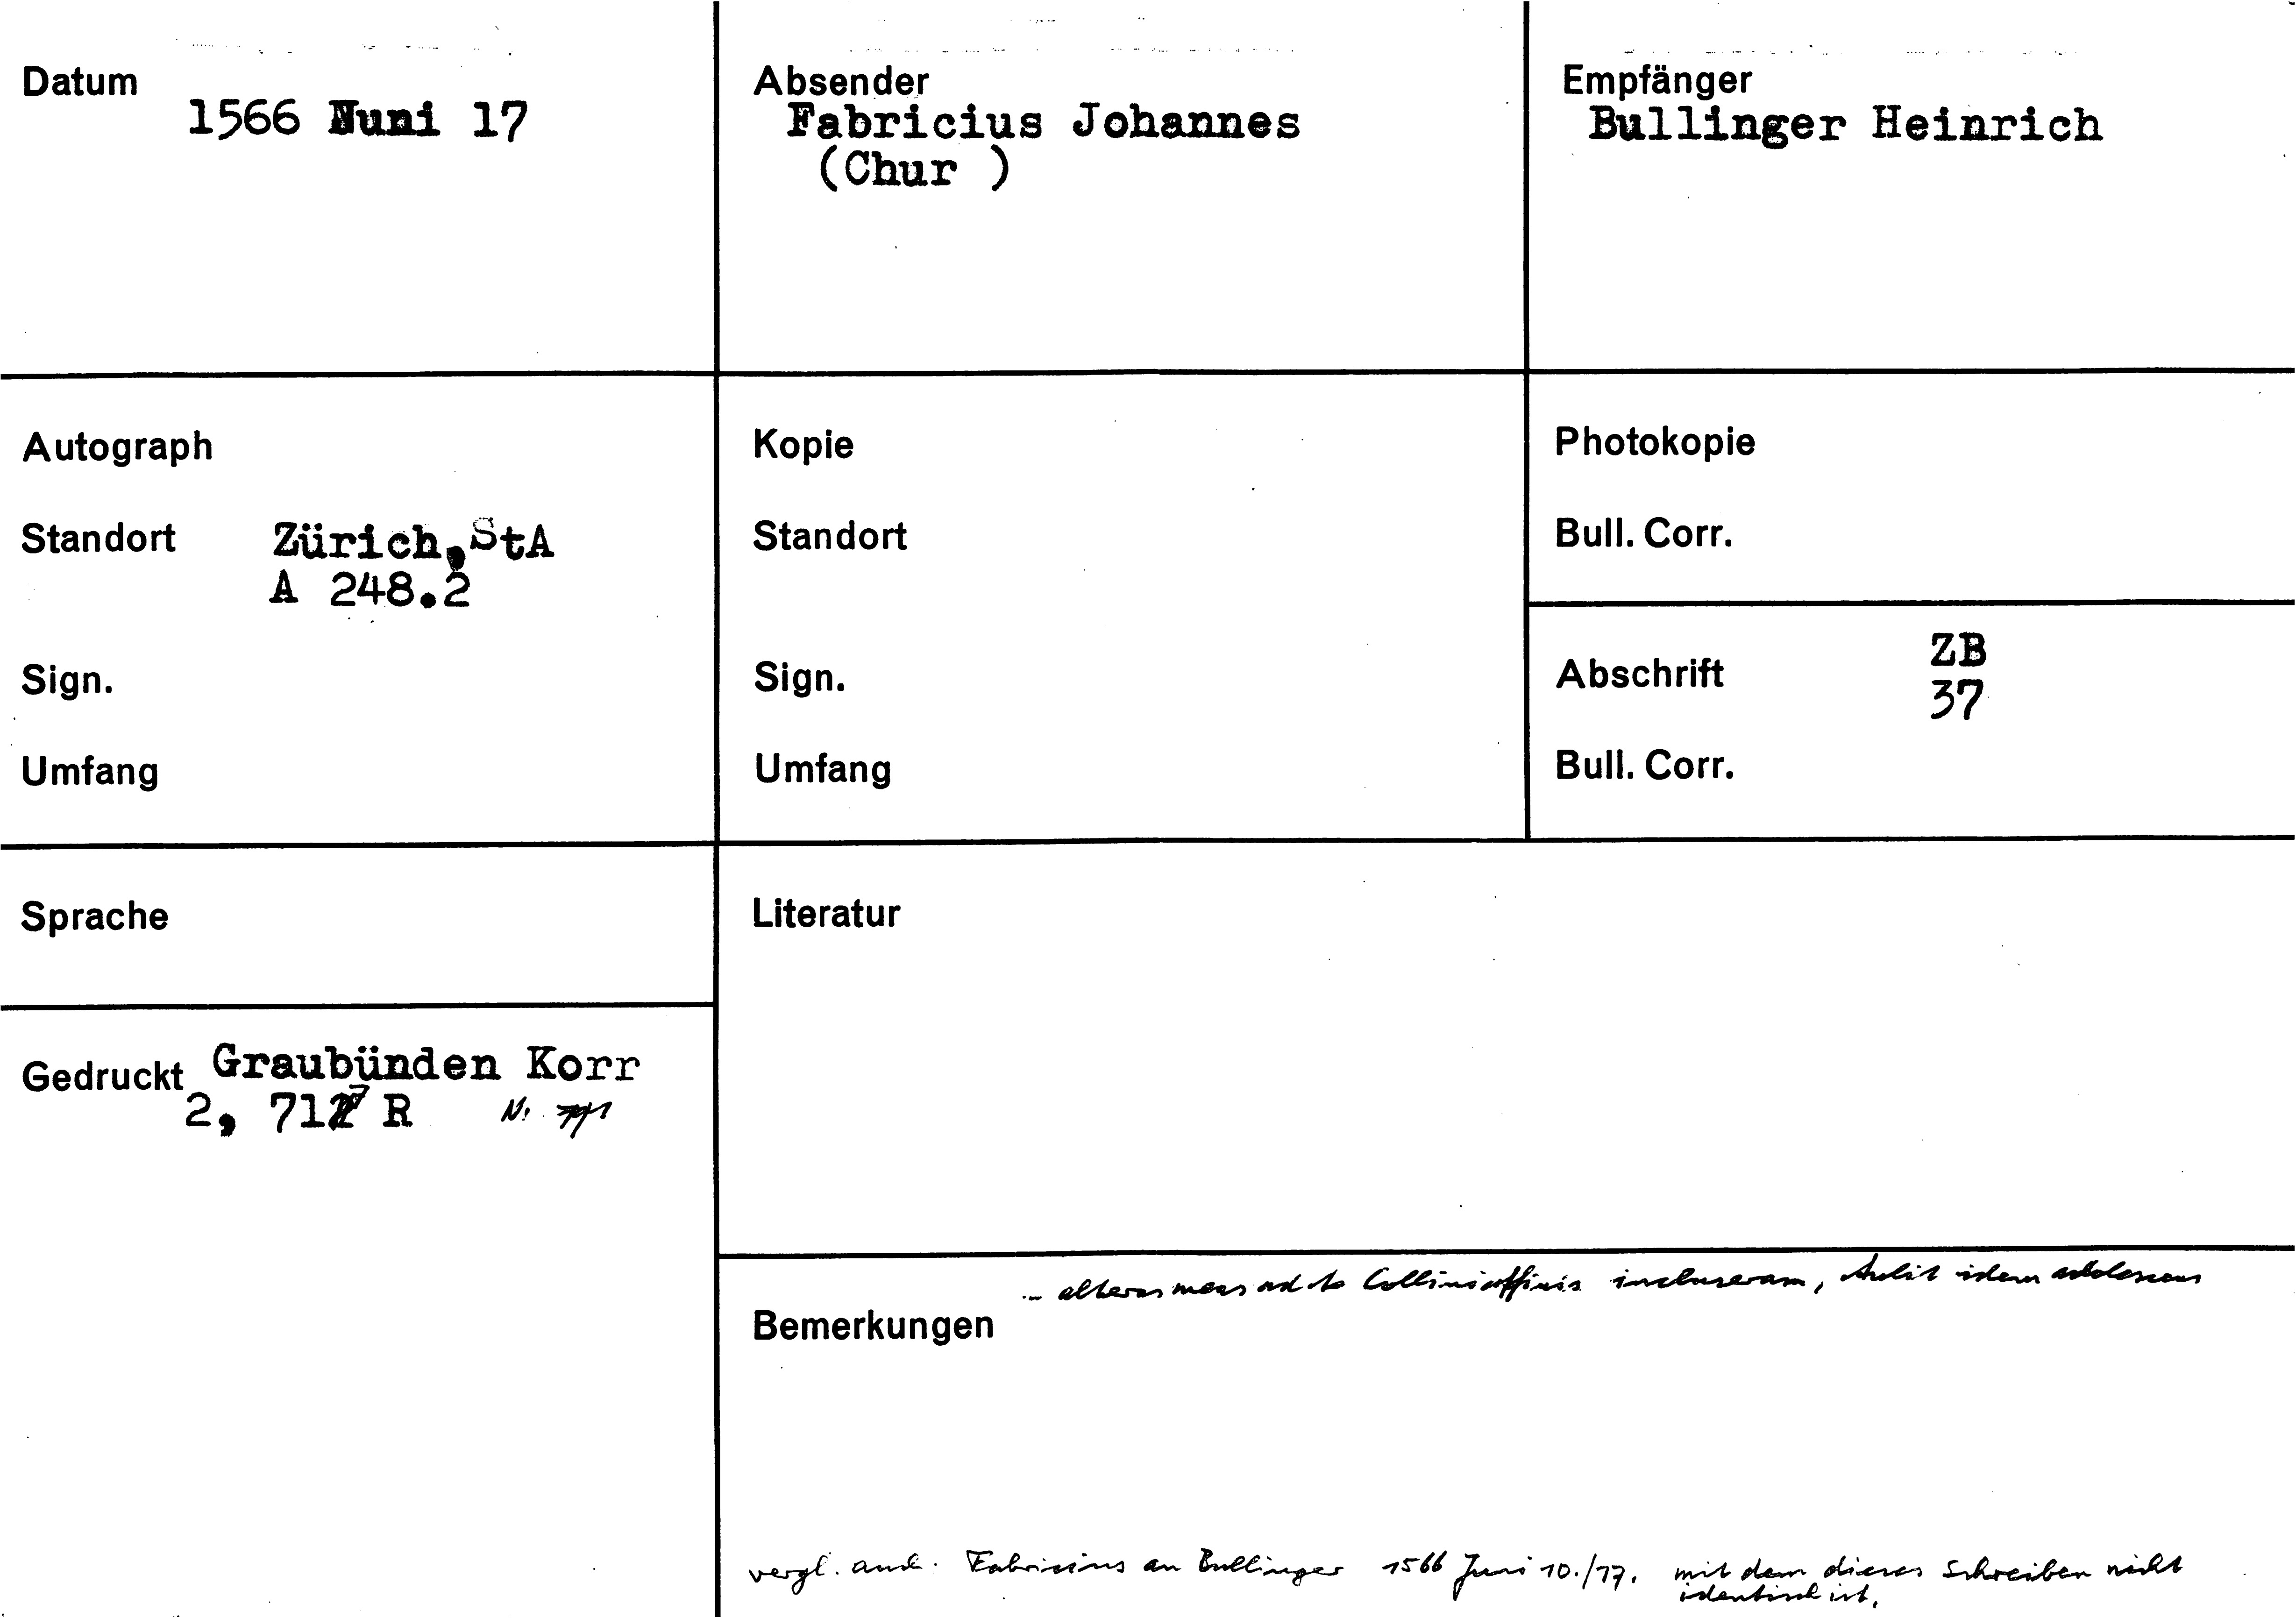 Datum
1566 Juni 17
Absender
Fabricius Johannes
(Chur )
Empfänger
Bullinger Heinrich
Autograph
Standort Zürich, StA
A 248.2
Sign.
Umfang
Kopie
Standort
Sign.
Umfang
Photokopie
Bull. Corr.
Abschrift ZB
37
Bull. Corr.
Sprache
Gedruckt Graubünden Korr
2, 717 R N.
Literatur
Bemerkungen
.. alteras meas ad te Collini affinis incluseram, idem adolescens
vergl. auch. Fabricius an Bullinger 1566 Juni 10./17. mit dem dieses Schreiben nicht
identisch ist.